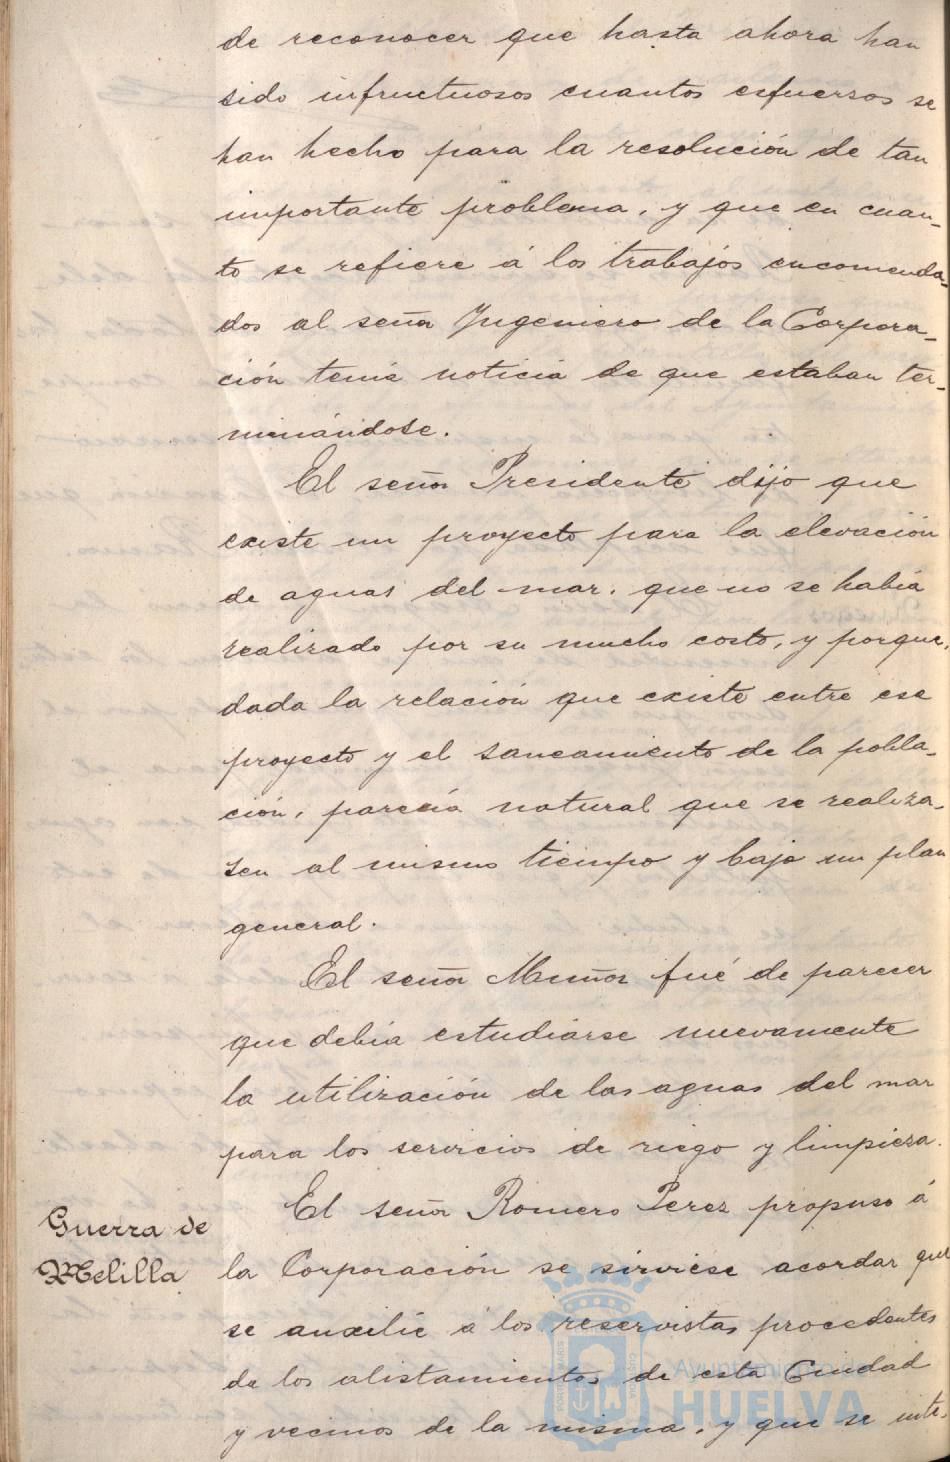 de reconocer que hasta ahora han
sido infructuosos cuantos esfuersos se
han hecho para la resolución de tan
importante problema, y que en cuan-
to se refiere á los trabajos encomenda-
dos al señor Yngeniero de la Corpora-
ción tenia noticia de que estaban ter-
minándose.
El señor Presidente dijo que
existe un proyecto para la elevación
de aguas del mar, que no se habia
realizado por su mucho costo, y porque,
dada la relación que existe entre ese
proyecto y el saneamiento de la pobla-
ción, parecía natural que se realiza-
sen al mismo tiempo y bajo un plan
general.
El señor Muñoz fué de parecer
que debia estudiarse nuevamente
la utilización de las aguas del mar
para los servicios de riego y limpieza.
Guerra de
Melilla
El señor Romero Perez propuso á
la Corporación se sirviese acordar que
se auxilie á los reservistas procedentes
de los alistamientos de esta Ciudad
y vecinos de la misma, y que se inte-
Ayuntamiento de
HUELVA